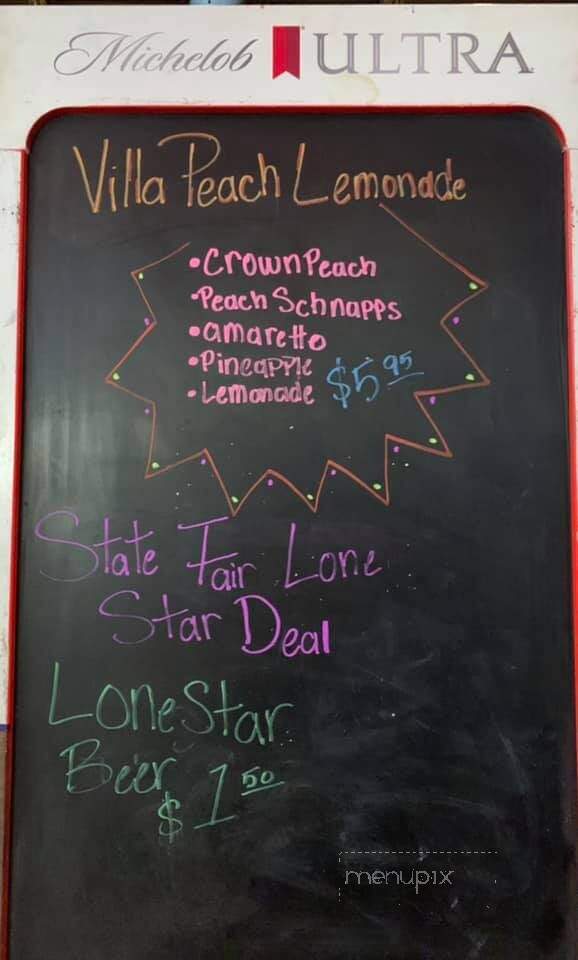 Michelob ULTRA
Villa Peach Lemonade
• Crown Peach
• Peach Schnapps
• amaretto
• Pineapple
• Lemonade $5.95
State Fair Lone
Star Deal
Lone Star
Beer
$1.50
menupix